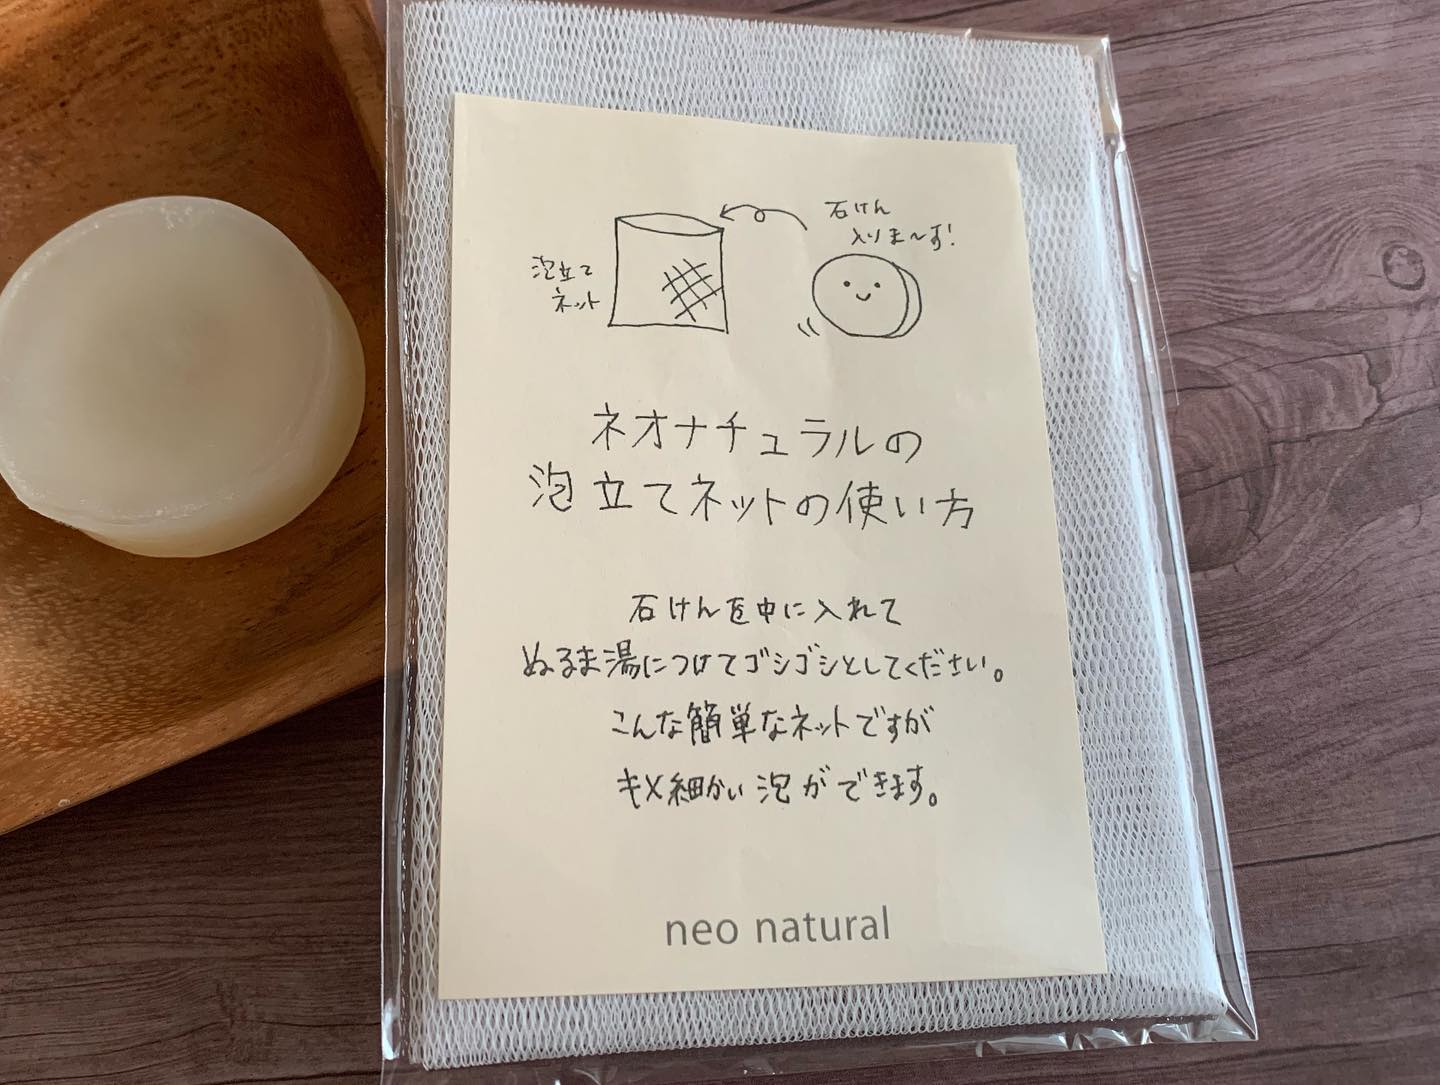 石けん
入りま〜す!
泡立て
ネット
ネオナチュラルの
泡立てネットの使い方
石けんを中に入れて
ぬるま湯につけてゴシゴシとしてください。
こんな簡単なネットですが
キメ細かい泡ができます。
neo natural